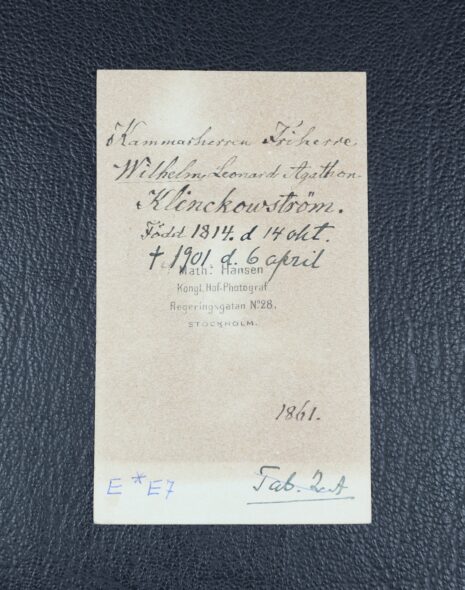 Kammarherren Friherre
Wilhelm Leonard Agathon
Klinckowström.
Född 1814. d 14 okt.
† 1901 d. 6 april
Math. Hansen
Kongl. Hof-Photograf
Regeringsgatan No 28.
STOCKHOLM.
1861.
E * E7
Tab. 2 A